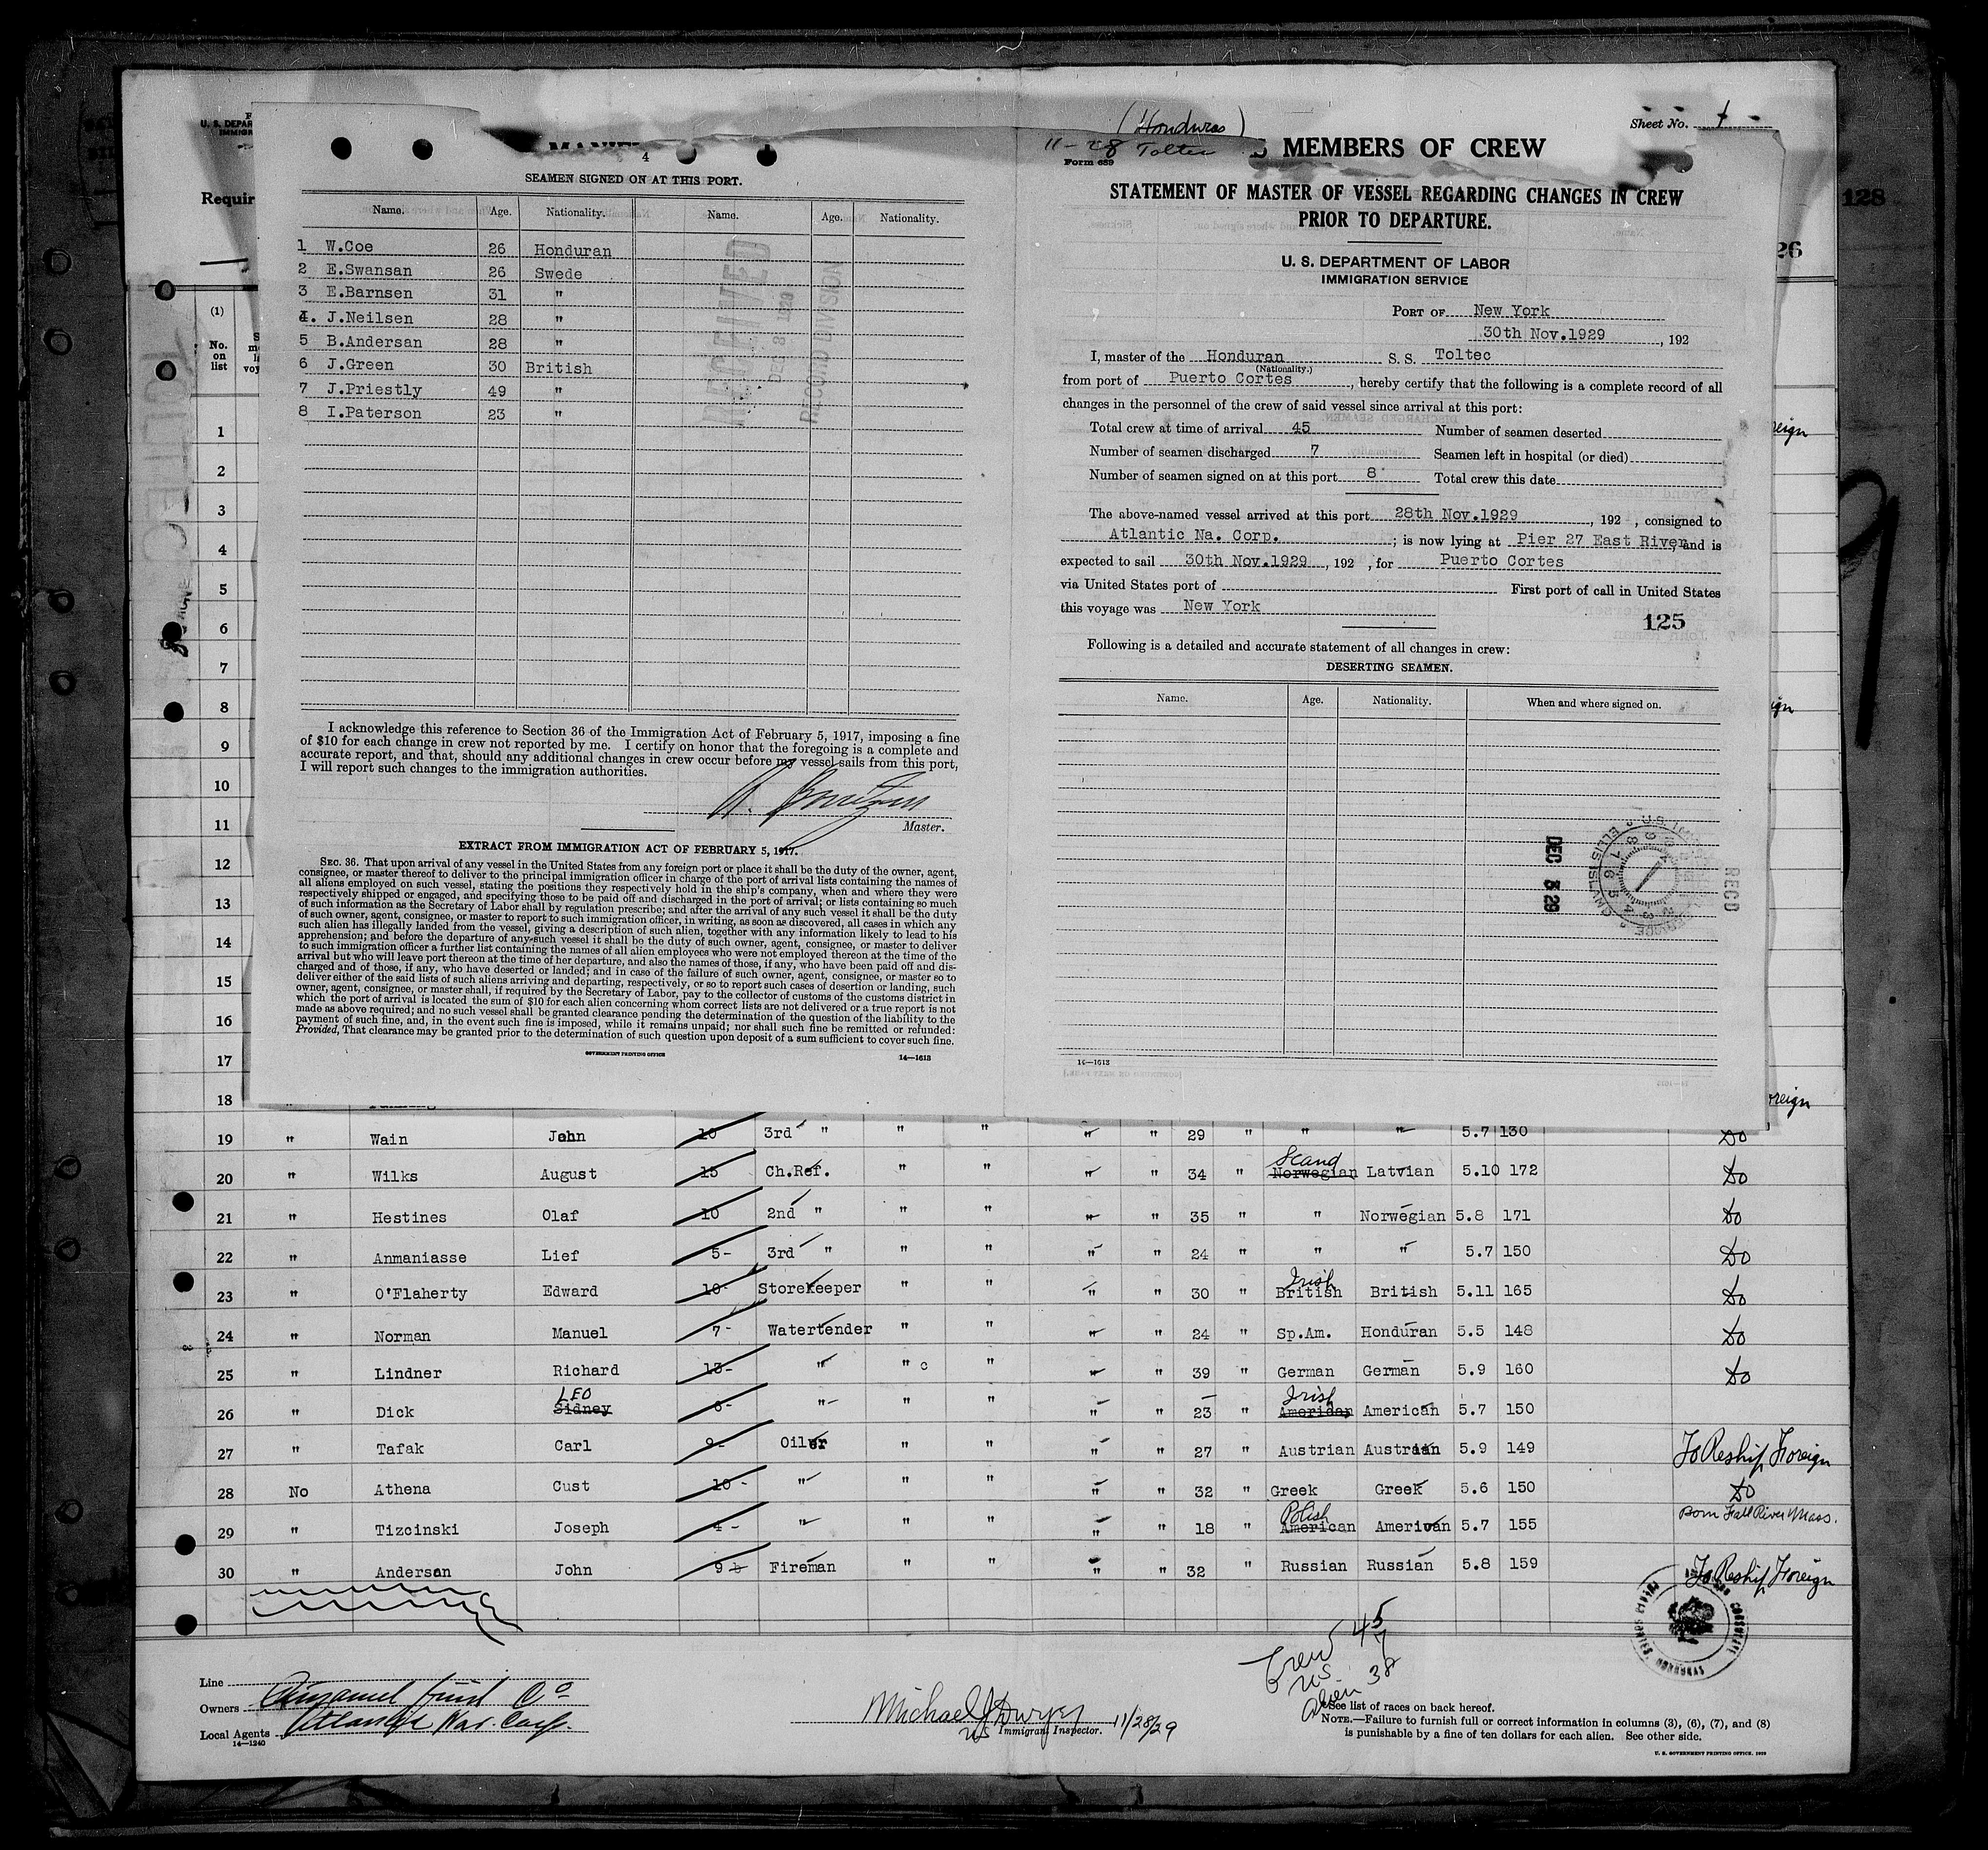 4
SEAMEN SIGNED ON AT THIS PORT.
Name. Age. Nationality. Name. Age. Nationality.
1 W.Coe 26 Honduran
2 E.Swansan 26 Swede
3 E.Barnsen 31 "
4. J.Neilsen 28 "
5 B.Andersan 28 "
6 J.Green 30 British
7 J.Priestly 49 "
8 I.Paterson 23 "
RECEIVED
DEC 8 1929
RECORD DIVISION
I acknowledge this reference to Section 36 of the Immigration Act of February 5, 1917, imposing a fine
of $10 for each change in crew not reported by me. I certify on honor that the foregoing is a complete and
accurate report, and that, should any additional changes in crew occur before my vessel sails from this port,
I will report such changes to the immigration authorities.
Master.
EXTRACT FROM IMMIGRATION ACT OF FEBRUARY 5, 1917.
SEC. 36. That upon arrival of any vessel in the United States from any foreign port or place it shall be the duty of the owner, agent,
consignee, or master thereof to deliver to the principal immigration officer in charge of the port of arrival lists containing the names of
all aliens employed on such vessel, stating the positions they respectively hold in the ship's company, when and where they were
respectively shipped or engaged, and specifying those to be paid off and discharged in the port of arrival; or lists containing so much
of such information as the Secretary of Labor shall by regulation prescribe; and after the arrival of any such vessel it shall be the duty
of such owner, agent, consignee, or master to report to such immigration officer, in writing, as soon as discovered, all cases in which any
such alien has illegally landed from the vessel, giving a description of such alien, together with any information likely to lead to his
apprehension; and before the departure of any such vessel it shall be the duty of such owner, agent, consignee, or master to deliver
to such immigration officer a further list containing the names of all alien employees who were not employed thereon at the time of the
arrival but who will leave port thereon at the time of her departure, and also the names of those, if any, who have been paid off and dis-
charged and of those, if any, who have deserted or landed; and in case of the failure of such owner, agent, consignee, or master so to
deliver either of the said lists of such aliens arriving and departing, respectively, or so to report such cases of desertion or landing, such
owner, agent, consignee, or master shall, if required by the Secretary of Labor, pay to the collector of customs of the customs district in
which the port of arrival is located the sum of $10 for each alien concerning whom correct lists are not delivered or a true report is not
made as above required; and no such vessel shall be granted clearance pending the determination of the question of the liability to the
payment of such fine, and, in the event such fine is imposed, while it remains unpaid; nor shall such fine be remitted or refunded:
Provided, That clearance may be granted prior to the determination of such question upon deposit of a sum sufficient to cover such fine.
GOVERNMENT PRINTING OFFICE 14—1613
(Honduras)
11-28 Toltec
Form 689
MEMBERS OF CREW
Sheet No. 1
STATEMENT OF MASTER OF VESSEL REGARDING CHANGES IN CREW
PRIOR TO DEPARTURE.
U. S. DEPARTMENT OF LABOR
IMMIGRATION SERVICE
PORT OF New York
30th Nov.1929, 192
I, master of the Honduran S. S. Toltec
(Nationality.)
from port of Puerto Cortes, hereby certify that the following is a complete record of all
changes in the personnel of the crew of said vessel since arrival at this port:
Total crew at time of arrival 45 Number of seamen deserted
Number of seamen discharged 7 Seamen left in hospital (or died)
Number of seamen signed on at this port 8 Total crew this date
The above-named vessel arrived at this port 28th Nov.1929, 192 , consigned to
Atlantic Na. Corp. ; is now lying at Pier 27 East River, and is
expected to sail 30th Nov.1929, 192 , for Puerto Cortes
via United States port of First port of call in United States
this voyage was New York
125
Following is a detailed and accurate statement of all changes in crew:
DESERTING SEAMEN.
Name. Age. Nationality. When and where signed on.
DEC 3 29
RECD
14—1613
128
26
U. S. DEPAR
IMMIGR
Requir
(1)
No.
on
list
1
2
3
4
5
6
7
8
9
10
11
12
13
14
15
16
17
18
19 " Wain John 10 3rd " " " " " 29 " " " 5.7 130 Do
20 " Wilks August 15 Ch.Ref. " " " " 34 " Norwegian Scand Latvian 5.10 172 Do
21 " Hestines Olaf 10 2nd " " " " " 35 " " Norwegian 5.8 171 Do
22 " Anmaniasse Lief 5- 3rd " " " " " 24 " " " 5.7 150 Do
23 " O'Flaherty Edward 10- Storekeeper " " " " 30 " British Irish British 5.11 165 Do
24 " Norman Manuel 7- Watertender " " " " 24 " Sp.Am. Honduran 5.5 148 Do
25 " Lindner Richard 13- " " c " " " 39 " German German 5.9 160 Do
26 " Dick Sidney LEO 6- " " " " " 23 " American Irish American 5.7 150
27 " Tafak Carl 9- Oiler " " " " 27 " Austrian Austrian 5.9 149 To Reship Foreign
28 No Athena Cust 10- " " " " " 32 " Greek Greek 5.6 150 Do
29 " Tizcinski Joseph 4- " " " " " 18 " American Polish American 5.7 155 Born Fall River Mass.
30 " Anderson John 9 Fireman " " " " 32 " Russian Russian 5.8 159 To Reship Foreign
Crew 45
US 7
Alien 38
Line
Owners
Local Agents Atlantic Nav. Corp.
14—1240
Michael J Dwyer 11/28/29
US Immigrant Inspector.
*See list of races on back hereof.
NOTE.—Failure to furnish full or correct information in columns (3), (6), (7), and (8)
is punishable by a fine of ten dollars for each alien. See other side.
U. S. GOVERNMENT PRINTING OFFICE